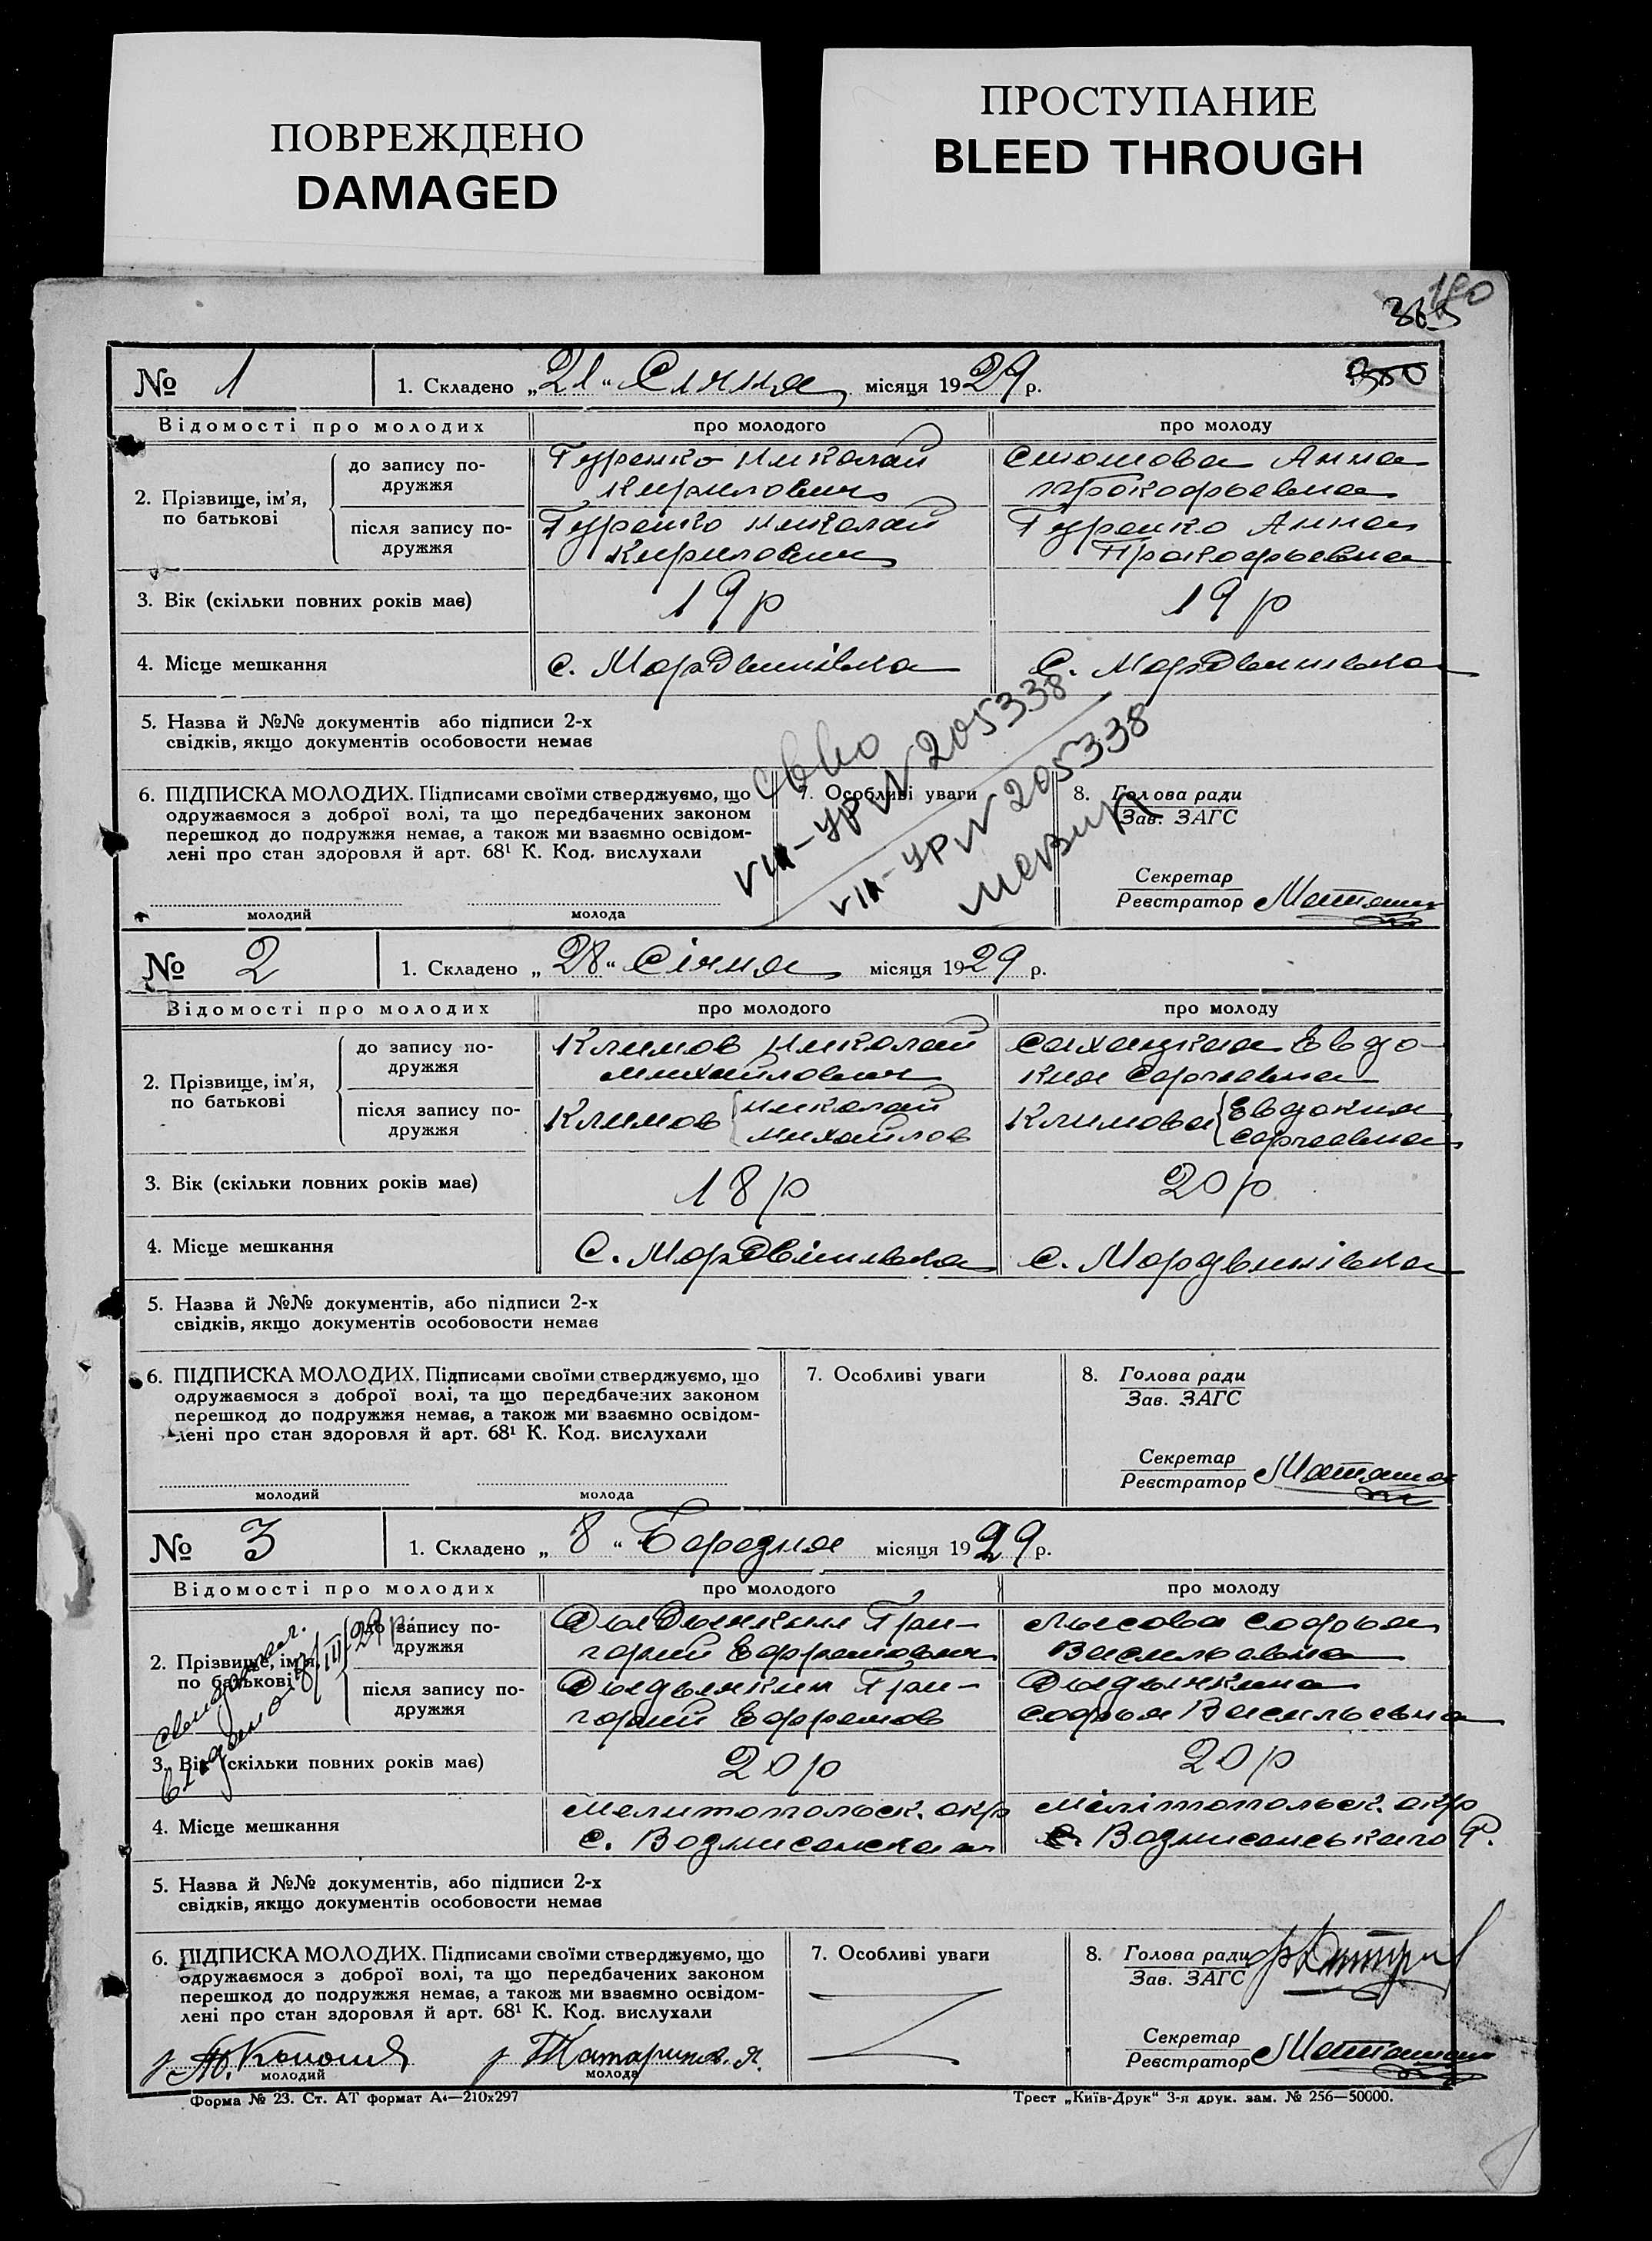 ПОВРЕЖДЕНО
DAMAGED
ПРОСТУПАНИЕ
BLEED THROUGH
180
365
350
№ 1
1. Складено „21“ Січня місяця 1929 р.
Відомості про молодих
про молодого
про молоду
2. Прізвище, ім’я,
по батькові
до запису по-
дружжя
Гуренко Николай
Кирилович
Анна
Прокофьевна
після запису по-
дружжя
Гуренко Николай
Кирилович
Гуренко Анна
Прокофьевна
3. Вік (скільки повних років має)
19 р
19 р
4. Місце мешкання
С. Мордвинівка
С. Мордвинівка
5. Назва й №№ документів або підписи 2-х
свідків, якщо документів особовости немає
6. ПІДПИСКА МОЛОДИХ. Підписами своїми стверджуємо, що
одружаємося з доброї волі, та що передбачених законом
перешкод до подружжя немає, а також ми взаємно освідом-
лені про стан здоровля й арт. 68¹ К. Код. вислухали
молодий
молода
7. Особливі уваги
VІІ-УР № 205338
VІІ-УР № 205338
8. Голова ради
Зав. ЗАГС
Секретар
Реєстратор
№ 2
1. Складено „28“ Січня місяця 1929 р.
Відомості про молодих
про молодого
про молоду
2. Прізвище, ім’я,
по батькові
до запису по-
дружжя
Климов Николай
Михайлович
Сахацкая Евдо-
кия Сергеевна
після запису по-
дружжя
Климов Николай
Михайлов
Климова Евдокия
Сергеевна
3. Вік (скільки повних років має)
18 р
20 р
4. Місце мешкання
С. Мордвінивка
С. Мордвинівка
5. Назва й №№ документів, або підписи 2-х
свідків, якщо документів особовости немає
6. ПІДПИСКА МОЛОДИХ. Підписами своїми стверджуємо, що
одружаємося з доброї волі, та що передбачених законом
перешкод до подружжя немає, а також ми взаємно освідом-
лені про стан здоровля й арт. 68¹ К. Код. вислухали
молодий
молода
7. Особливі уваги
8. Голова ради
Зав. ЗАГС
Секретар
Реєстратор
№ 3
1. Складено „8“ Березня місяця 1929 р.
Відомості про молодих
про молодого
про молоду
2. Прізвище, ім’я,
по батькові
до запису по-
дружжя
Дидычкин Гри-
горий Ефремович
Лысова Софья
Васильевна
після запису по-
дружжя
Дидычкин Гри-
горий Ефремов
Дидычкина
Софья Васильевна
3. Вік (скільки повних років має)
20 р
20 р
4. Місце мешкання
Мелитопольск. окр
с. Вознисенская
Мелітопольск. окр
Вознисенського Р.
5. Назва й №№ документів, або підписи 2-х
свідків, якщо документів особовости немає
6. ПІДПИСКА МОЛОДИХ. Підписами своїми стверджуємо, що
одружаємося з доброї волі, та що передбачених законом
перешкод до подружжя немає, а також ми взаємно освідом-
лені про стан здоровля й арт. 68¹ К. Код. вислухали
молодий
молода
7. Особливі уваги
8. Голова ради
Зав. ЗАГС
Секретар
Реєстратор
Форма № 23. Ст. АТ формат А₄—210x297
Трест „Київ-Друк“ 3-я друк. зам. № 256—50000.